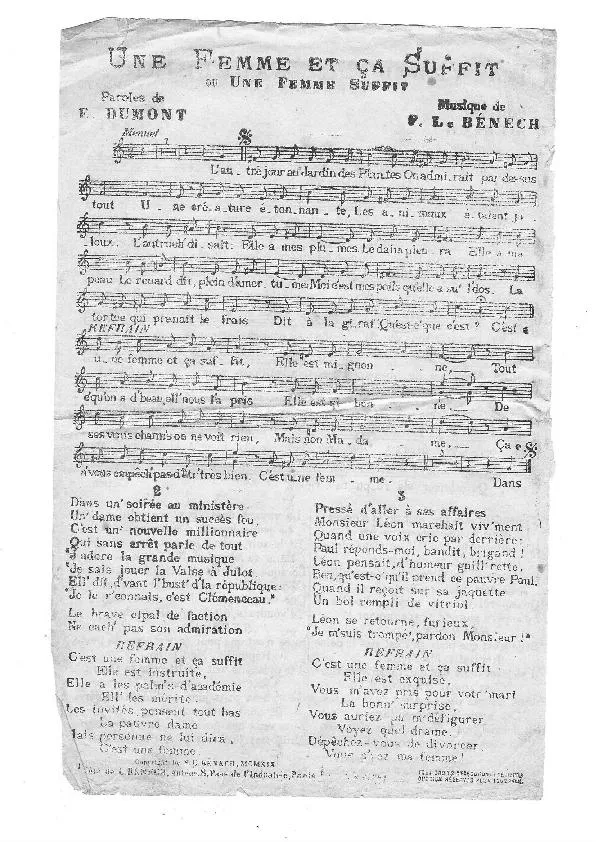 UNE FEMME ET ÇA SUFFIT
OU UNE FEMME SUFFIT
Paroles de
E. DUMONT
Musique de
F. L. BÉNECH
Menuet
L'au_tre jour au Jardin des Plantes On admi_rait par dessus
tout U_ne cré_a_ture é_ton_nan_te, Les a_ni_maux é_taient ja_
loux. L'autruch' di_sait: Elle a mes plu_mes. Le daim pleu_ra Elle a ma
peau Le renard dit, plein d'amer_tu_me: Moi c'est mes poils qu'elle a su' l'dos. La
tortue qui prenait le frais Dit à la gi_raf' Qu'est-c'que c'est? C'est
REFRAIN
u_ne femme et ça suf_fit, Elle est mi_gnon_ne, Tout
c'qu'on a d'beau ell' nous l'a pris Elle est si bon_ne. De
ses vous charm's on ne voit rien, Mais non Ma_da_me, Ça
n'vous empêch' pas d'êtr' très bien. C'est u_ne fem_me. Dans
2
Dans un' soirée au ministère
Un' dame obtient un succès fou,
C'est un' nouvelle millionnaire
Qui sans arrêt parle de tout
"J'adore la grande musique
"Je sais jouer la Valse à Julot
Ell' dit, d'vant l'bust' d'la république:
"Je le r'connais, c'est Clémenceau."
Le brave cipal de faction
Ne cach' pas son admiration
REFRAIN
C'est une femme et ça suffit
Elle est instruite,
Elle a les palm's d'académie
Ell' les mérite.
Les invités pensent tout bas
La pauvre dame
Mais personne ne lui dira,
C'est une femme.
3
Pressé d'aller à ses affaires
Monsieur Léon marchait viv'ment
Quand une voix crie par derrière:
Paul réponds-moi, bandit, brigand!
Léon pensait, d'humeur guill'rette,
Ben, qu'est-c' qu'il prend ce pauvre Paul,
Quand il reçoit sur sa jaquette
Un bol rempli de vitriol.
Léon se retourne, furieux,
"Je m'suis trompé', pardon Monsieur!"
REFRAIN
C'est une femme et ça suffit
Elle est exquise,
Vous m'avez pris pour votr' mari
La bonn' surprise,
Vous auriez pu m'défigurer
Voyez quel drame.
Dépêchez-vous de divorcer
Vous s'rez ma femme!
Copyright by F. L. BENECH, MCMXIX
L. BENECH, Auteur, 8, Pass. de l'Industrie, Paris